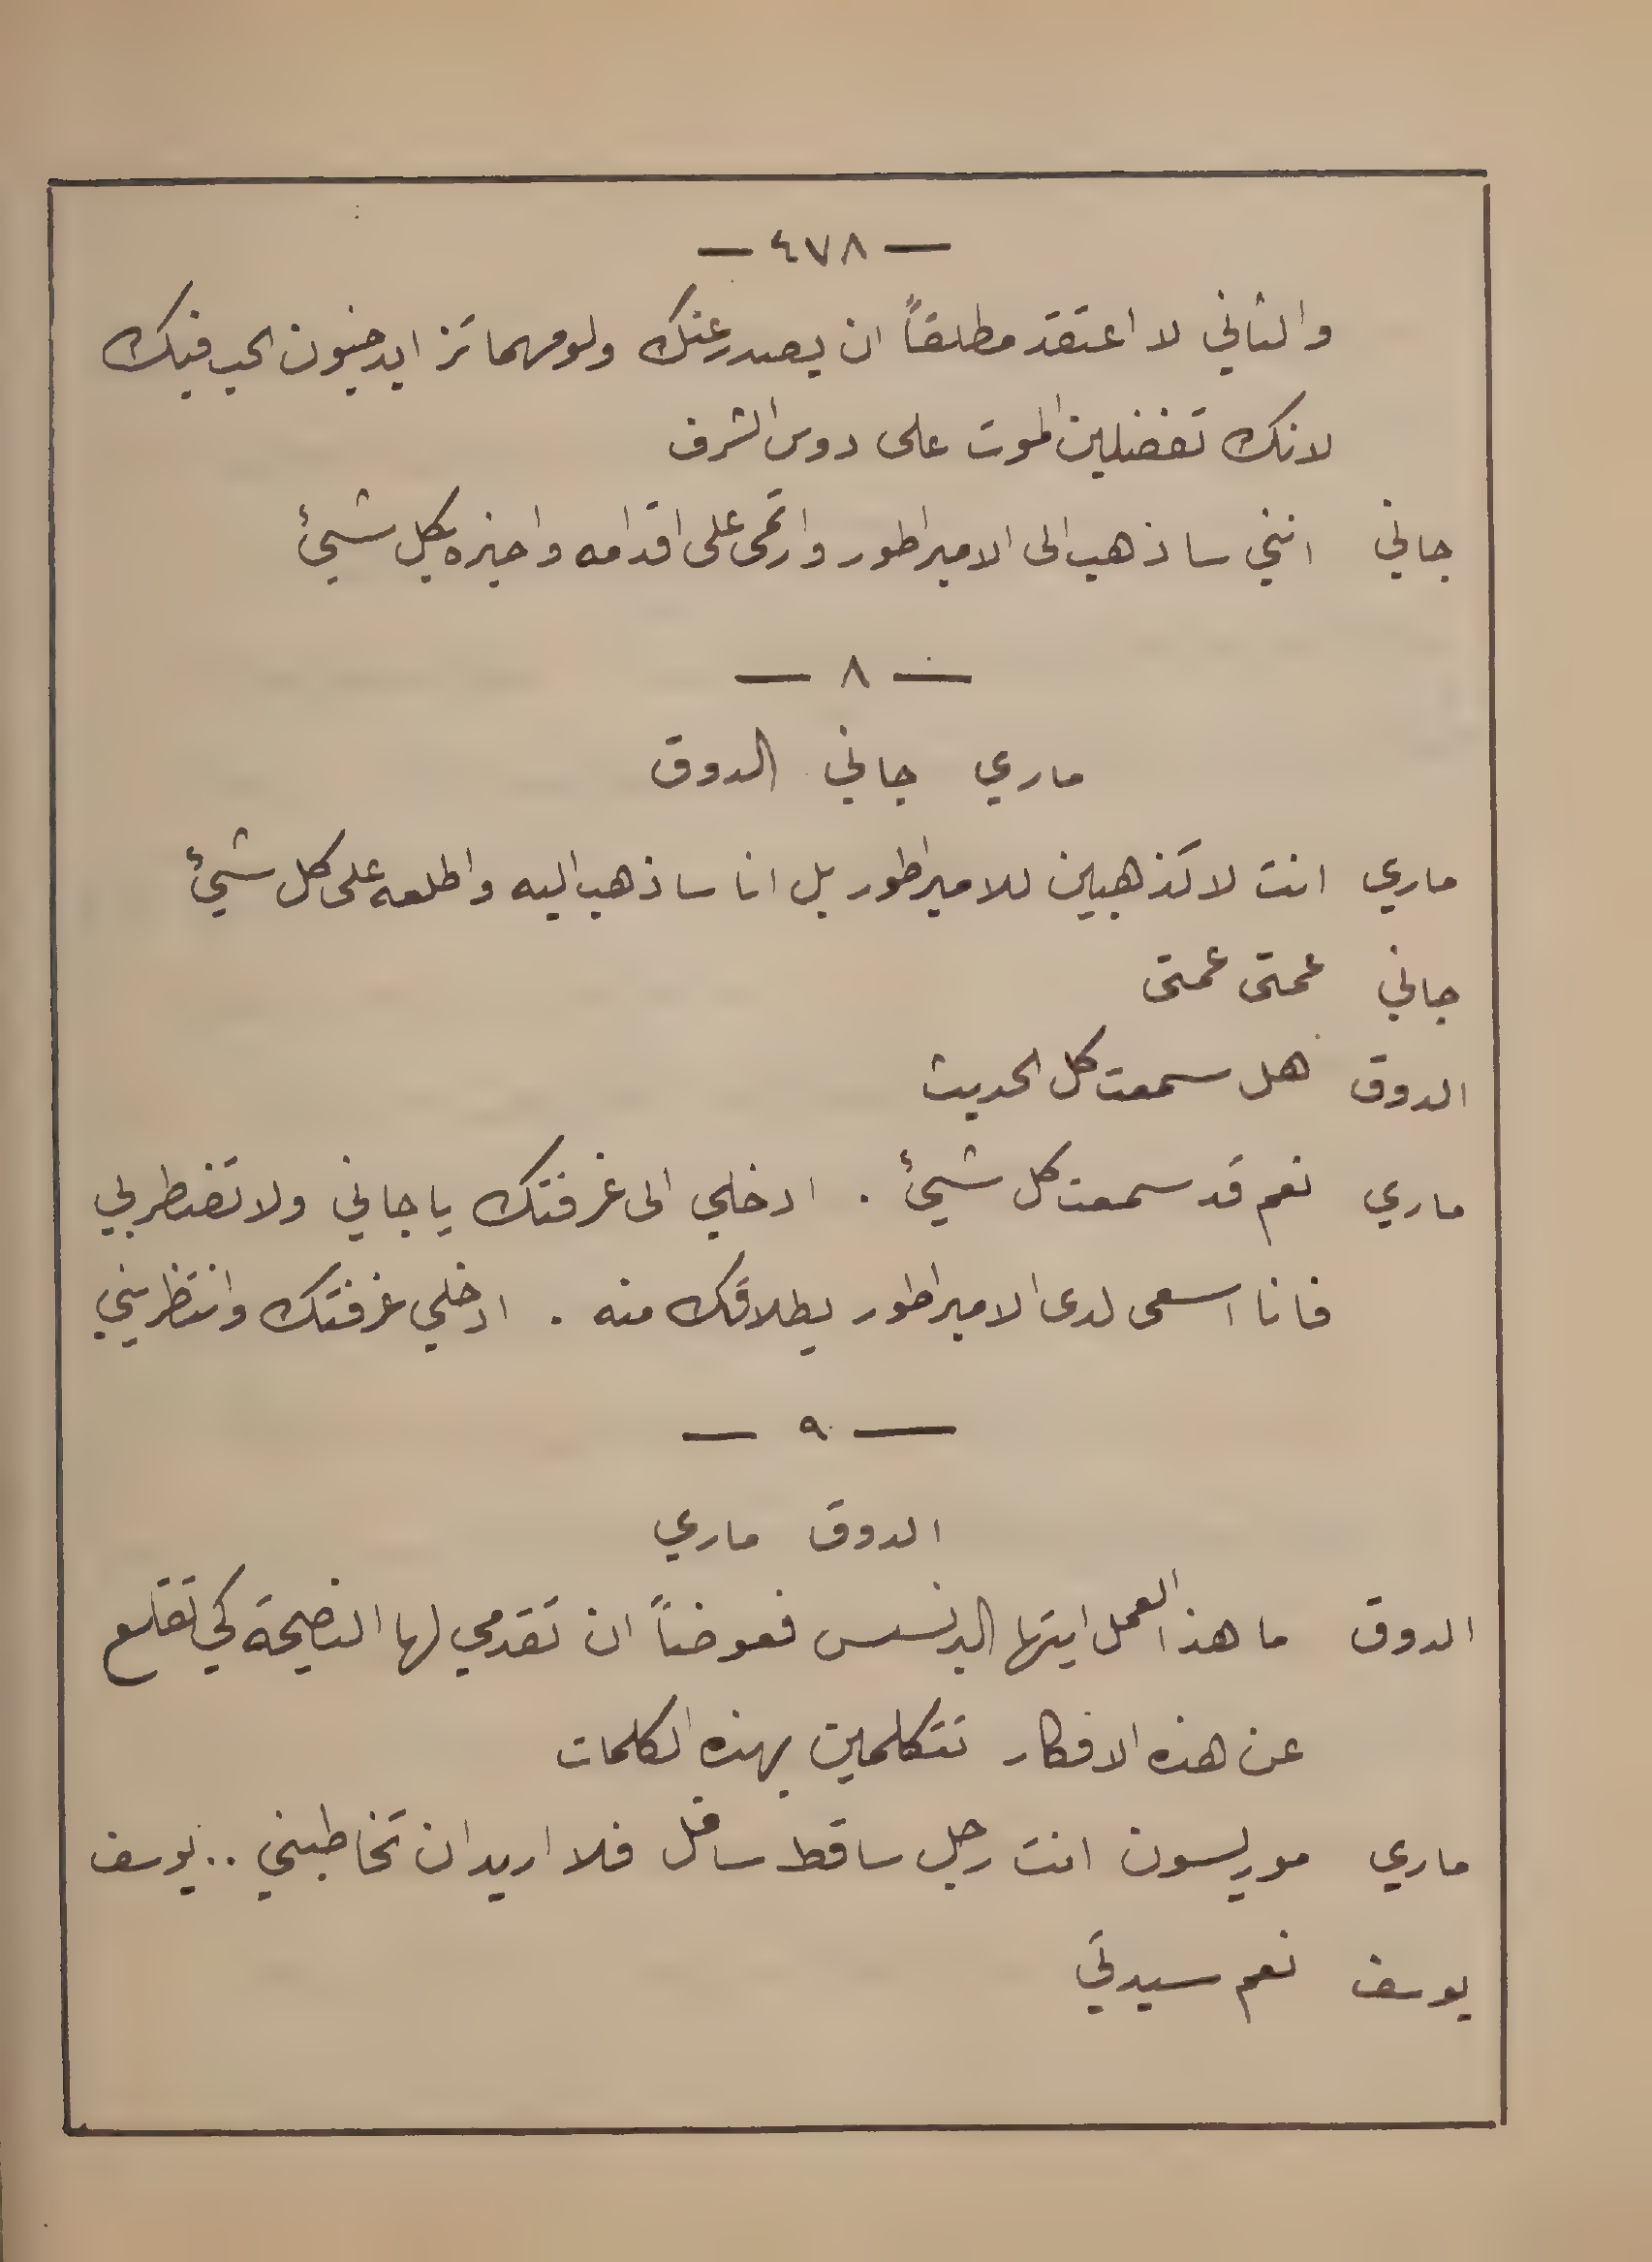 — ٤٧٨ —
والثاني لا اعتقد مطلقاً ان يصدر عنك ولو مهما تزايد جنون الحب فيك
لانك تفضلين الموت على دوس الشرف
جاني انني ساذهب الى الامبراطور وارتمى على اقدامه واخبره بكل شيئ
— ٨ —
ماري جاني الدوق
ماري انت لا تذهبين للامبراطور بل انا ساذهب اليه واطلعه على كل شيئ
جاني عمتى عمتى
الدوق هل سمعت كل الحديث
ماري نعم قد سمعت كل شيئ . ادخلي الى غرفتك يا جاني ولا تضطربي
فانا اسعى لدى الامبراطور بطلاقك منه . ادخلي غرفتك وانتظريني
— ٩ —
الدوق ماري
الدوق ما هذا العمل ايتها البرنسس فعوضاً ان تقدمي لها النصيحة كي تقلع
عن هذه الافكار تتكلمين بهذه الكلمات
ماري موريسون انت رجل ساقط سافل فلا اريد ان تخاطبني .. يوسف
يوسف نعم سيدتي